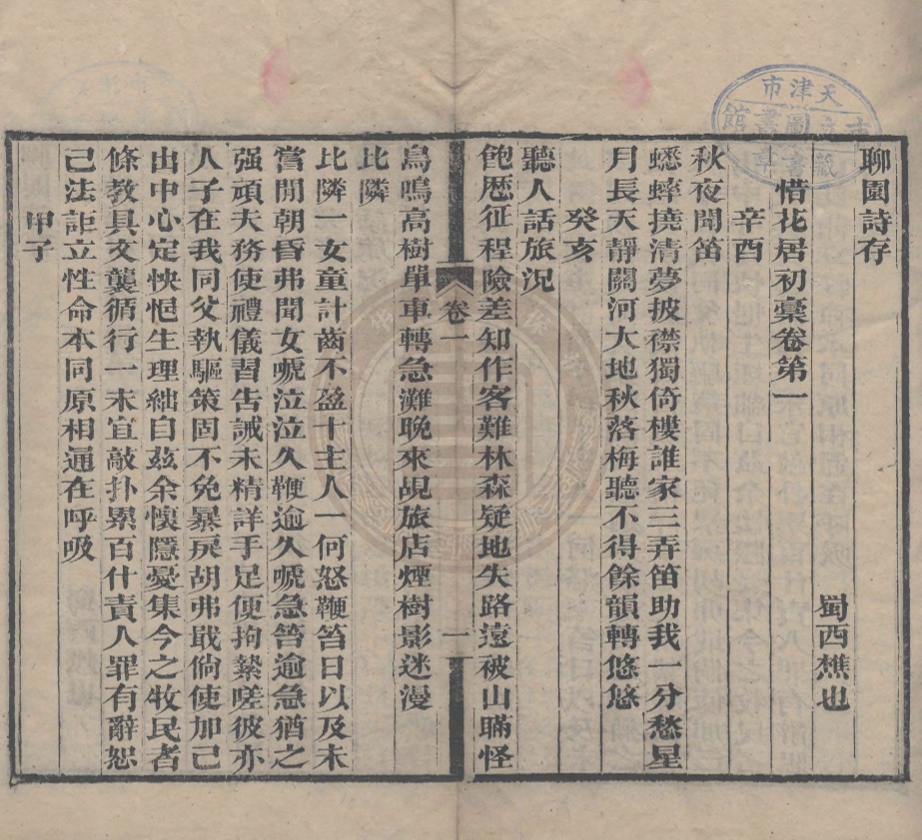 聊園詩存
惜花居初稾卷第一
蜀西樵也
辛酉
秋夜聞笛
蟋蟀撓清夢披襟獨倚樓誰家三弄笛助我一分愁星
月長天靜關河大地秋落梅聽不得餘韻轉悠悠
癸亥
聽人話旅況
飽歷征程險差知作客難林森疑地失路遠被山瞞怪
卷一
一
鳥鳴高樹單車轉急灘晚來覘旅店煙樹影迷漫
比隣
比隣一女童計齒不盈十主人一何怒鞭笞日以及未
嘗閒朝昏弗聞女唬泣泣久鞭逾久唬急笞逾急猶之
强頑夫務使禮儀習告誡未精詳手足便拘縶嗟彼亦
人子在我同父執驅策固不免暴戾胡弗戢倘使加己
出中心定怏悒生理絀自玆余懷隱憂集今之牧民者
條教具文襲循行一未宜敲扑累百什責人罪有辭恕
己法詎立性命本同原相通在呼吸
甲子
天津市
圖書館